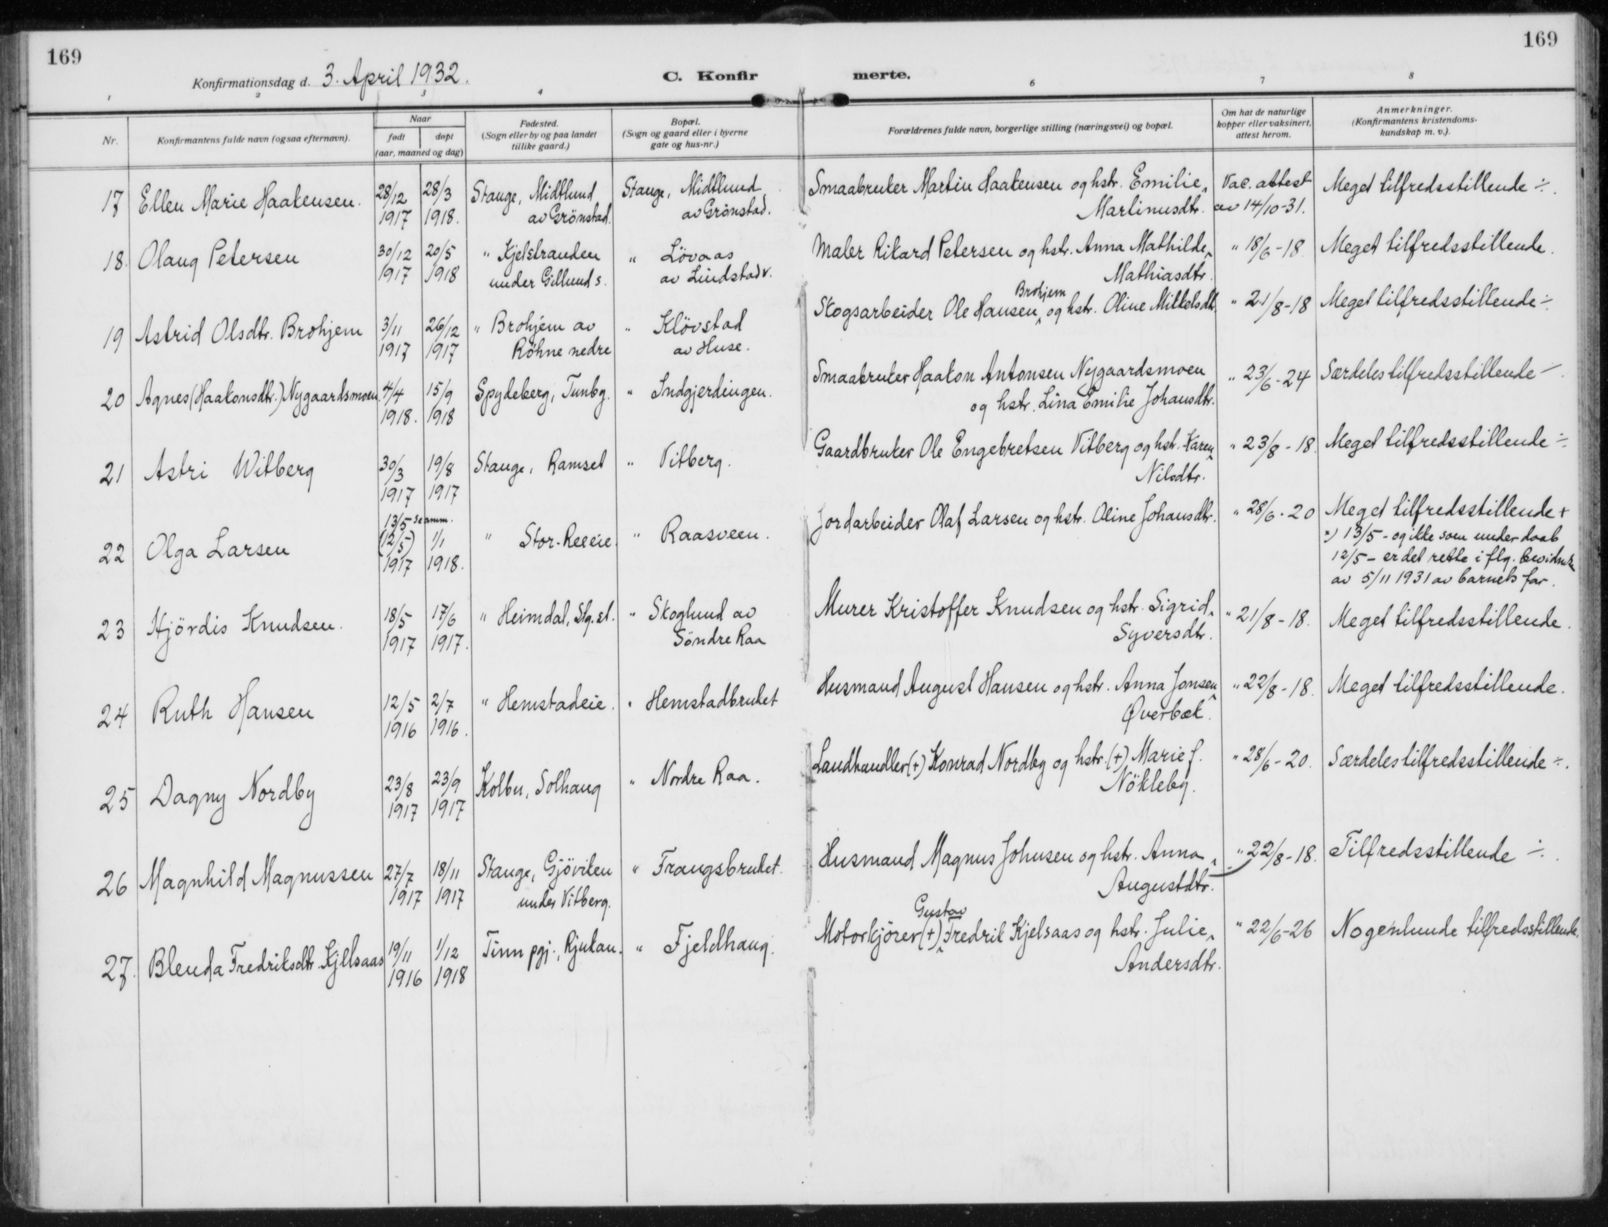 169
169
Konfirmationsdag d. 3. April 1932.
C. Konfirmerte.
1 2 3 4 6 7 8
Nr.
Konfirmantens fulde navn (ogsaa efternavn).
Naar
født døpt
(aar, maaned og dag)
Fødested.
(Sogn eller by og paa landet
tillike gaard.)
Bopæl.
(Sogn og gaard eller i byerne
gate og hus-nr.)
Forældrenes fulde navn, borgerlige stilling (næringsvei) og bopæl.
Om hat de naturlige
kopper eller vaksinert,
attest herom.
Anmerkninger.
(Konfirmantens kristendoms-
kundskap m. v.).
17 Ellen Marie Haakensen. 28/12 28/3 Stange, Midtlund Stange, Midtlund Smaabruker Martin Haakensen og hstr. Emilie Vac. attest Meget tilfredsstillende ÷.
1917 1918. av Grönstad. av Grönstad. Martinusdtr. av 14/10-31.
18. Olaug Petersen 30/12 20/5 " Kjelstranden " Lövaas Maler Rikard Petersen og hstr. Anna Mathilde " 18/6-18. Meget tilfredsstillende.
1917 1918 under Gillund s. av Lindstad v. Mathiasdtr.
19 Astrid Olsdtr. Brohjem 3/11 26/12 " Brohjem av " Klövstad Skogsarbeider Ole Hansen Brohjem og hstr. Oline Mikkelsdtr. " 21/8-18 Meget tilfredsstillende ÷
1917 1917 Röhne nedre av Huse.
20 Agnes (Haakonsdtr.) Nygaardsmoen 4/4 15/9 Spydeberg, Tunby. " Indgjerdingen. Smaabruker Haakon Antonsen Nygaardsmoen " 23/6-24 Særdeles tilfredsstillende
1918. 1918 og hstr. Lina Emilie Johansdtr.
21 Astri Witberg 30/3 19/8 Stange, Ramset " Vitberg. Gaardbruker Ole Engebretsen Vitberg og hst. Karen " 23/8-18. Meget tilfredsstillende ÷
1917 1917 Nilsdtr.
22 Olga Larsen 13/5 se anm. (12/5) 1/1 " Stor-Reeeie. " Raasveen. Jordarbeider Olaf Larsen og hstr. Oline Johansdtr. " 28/6-20 Meget tilfredsstillende +
1917 1918. 13/5 - og ikke som under daab
12/5 - er det rette i flg.
av 5/11 1931 av barnets far.
23 Hjördis Knudsen. 18/5 17/6 " Heimdal, Stg. st. " Skoglund av Murer Kristoffer Knudsen og hstr. Sigrid " 21/8-18. Meget tilfredsstillende.
1917 1917. Söndre Raa Syversdtr.
24 Ruth Hansen 12/5 2/7 " Hemstadeie. " Hemstadbruket Husmand August Hansen og hstr. Anna Jonsen " 22/8-18. Meget tilfredsstillende.
1916 1916. Øverbæk.
25 Dagny Nordby 23/8 23/9 Kolbu, Solhaug " Nordre Raa. Landhandler (+) Konrad Nordby og hstr. (+) Marie f. " 28/6-20. Særdeles tilfredsstillende ÷.
1917 1917 Nökleby.
26 Magnhild Magnussen 27/7 18/11 Stange, Gjöviken " Frangsbruket. Husmand Magnus Johnsen og hstr. Anna " 22/8-18. Tilfredsstillende ÷.
1917 1917 under Vitberg. Augustdtr.
27. Blenda Fredriksdtr. Kjelsaas 19/11 1/12 Tinn pgj., Rjukan. " Fjeldhaug. Motorkjörer (+) Gustav Fredrik Kjelsaas og hstr. Julie " 22/6-26 Nogenlunde tilfredsstillende.
1916 1918 Andersdtr.